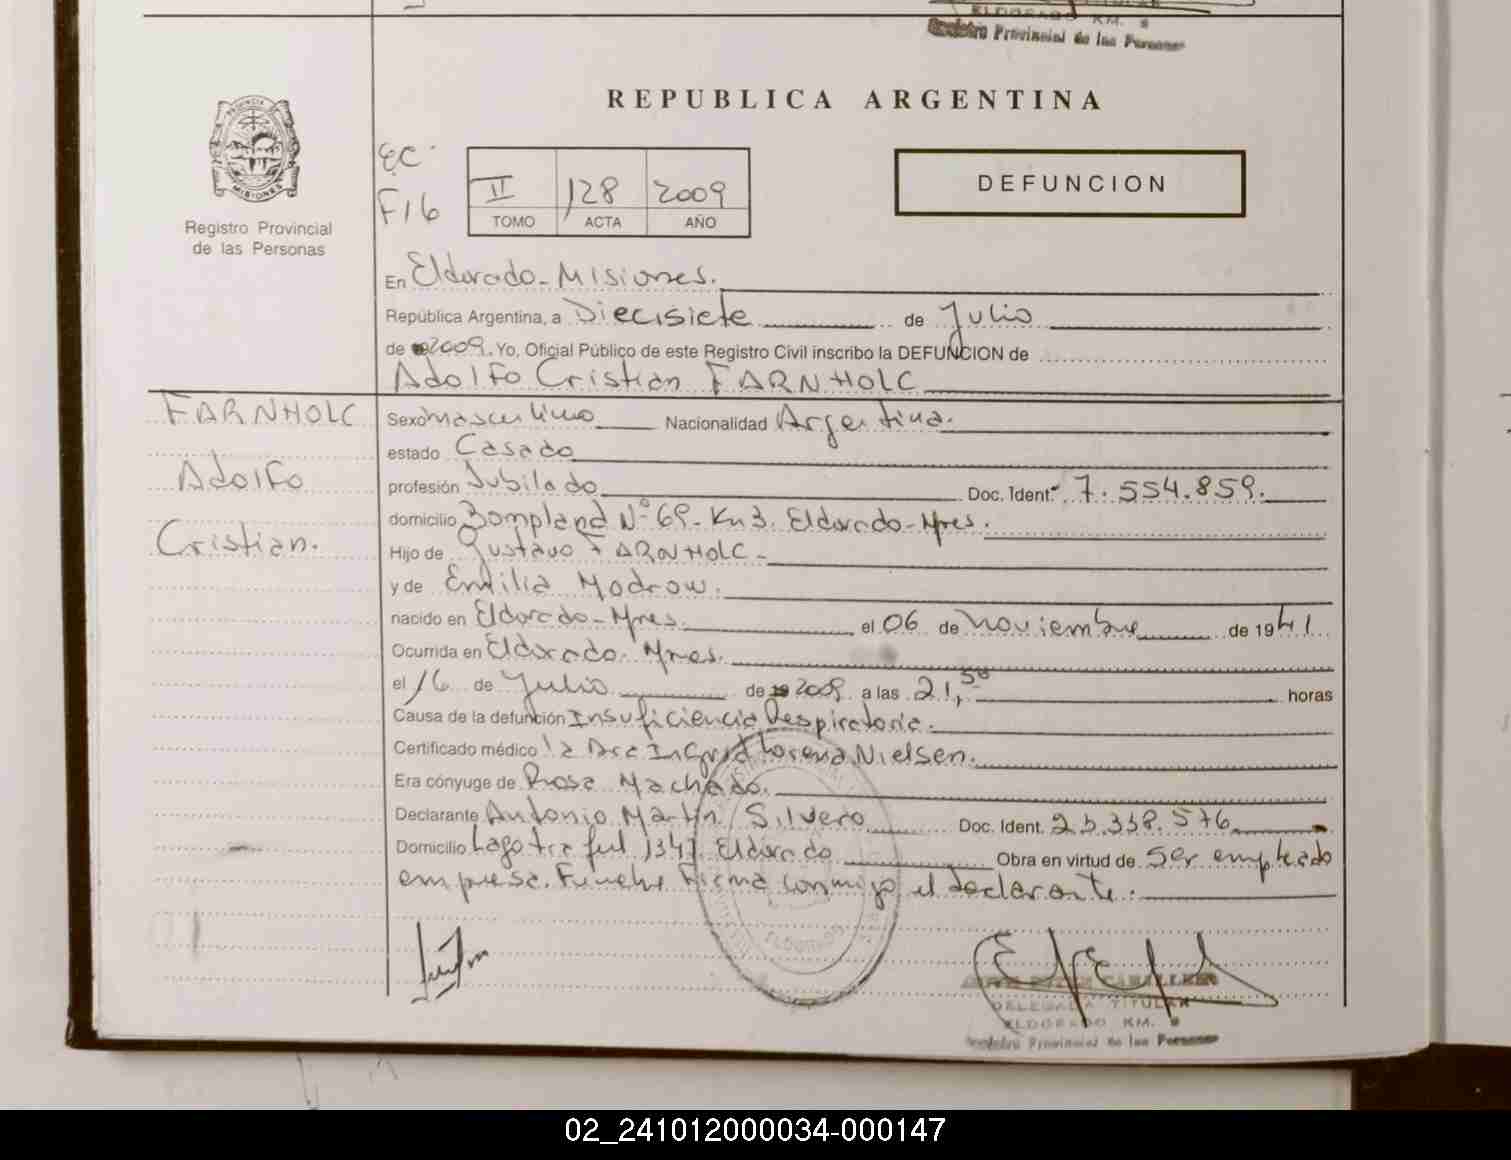 ELDORADO KM. 9
Registro Provincial de las Personas
REPUBLICA ARGENTINA
EC
F16
II 128 2009
TOMO ACTA AÑO
DEFUNCION
Registro Provincial
de las Personas
En Eldorado - Misiones.
República Argentina, a Diecisiete de Julio
de 2009. Yo, Oficial Público de este Registro Civil inscribo la DEFUNCION de
Adolfo Cristian FARNHOLC
FARNHOLC
Adolfo
Cristian.
Sexo masculino Nacionalidad Argentina.
estado Casado
profesión Jubilado Doc. Ident. 7.554.859.
domicilio Bompland Nº 69 - Km 3. Eldorado - Mnes.
Hijo de Gustavo FARNHOLC -
y de Emilia Modrow.
nacido en Eldorado - Mnes. el 06 de Noviembre de 1941
Ocurrida en Eldorado - Mnes.
el 16 de Julio de 2009 a las 21,50 horas
Causa de la defunción Insuficiencia Respiratoria.
Certificado médico la Dra Ingrid Lorena Nielsen.
Era cónyuge de Rosa Machado.
Declarante Antonio Martin Silvero Doc. Ident. 23.338.576
Domicilio Lago 1347 Eldorado Obra en virtud de Ser empleado
empresa. Funebre Firma conmigo el declarante.
ELDORADO
DELEGADA TITULAR
ELDORADO KM. 9
Registro Provincial de las Personas
02_241012000034-000147